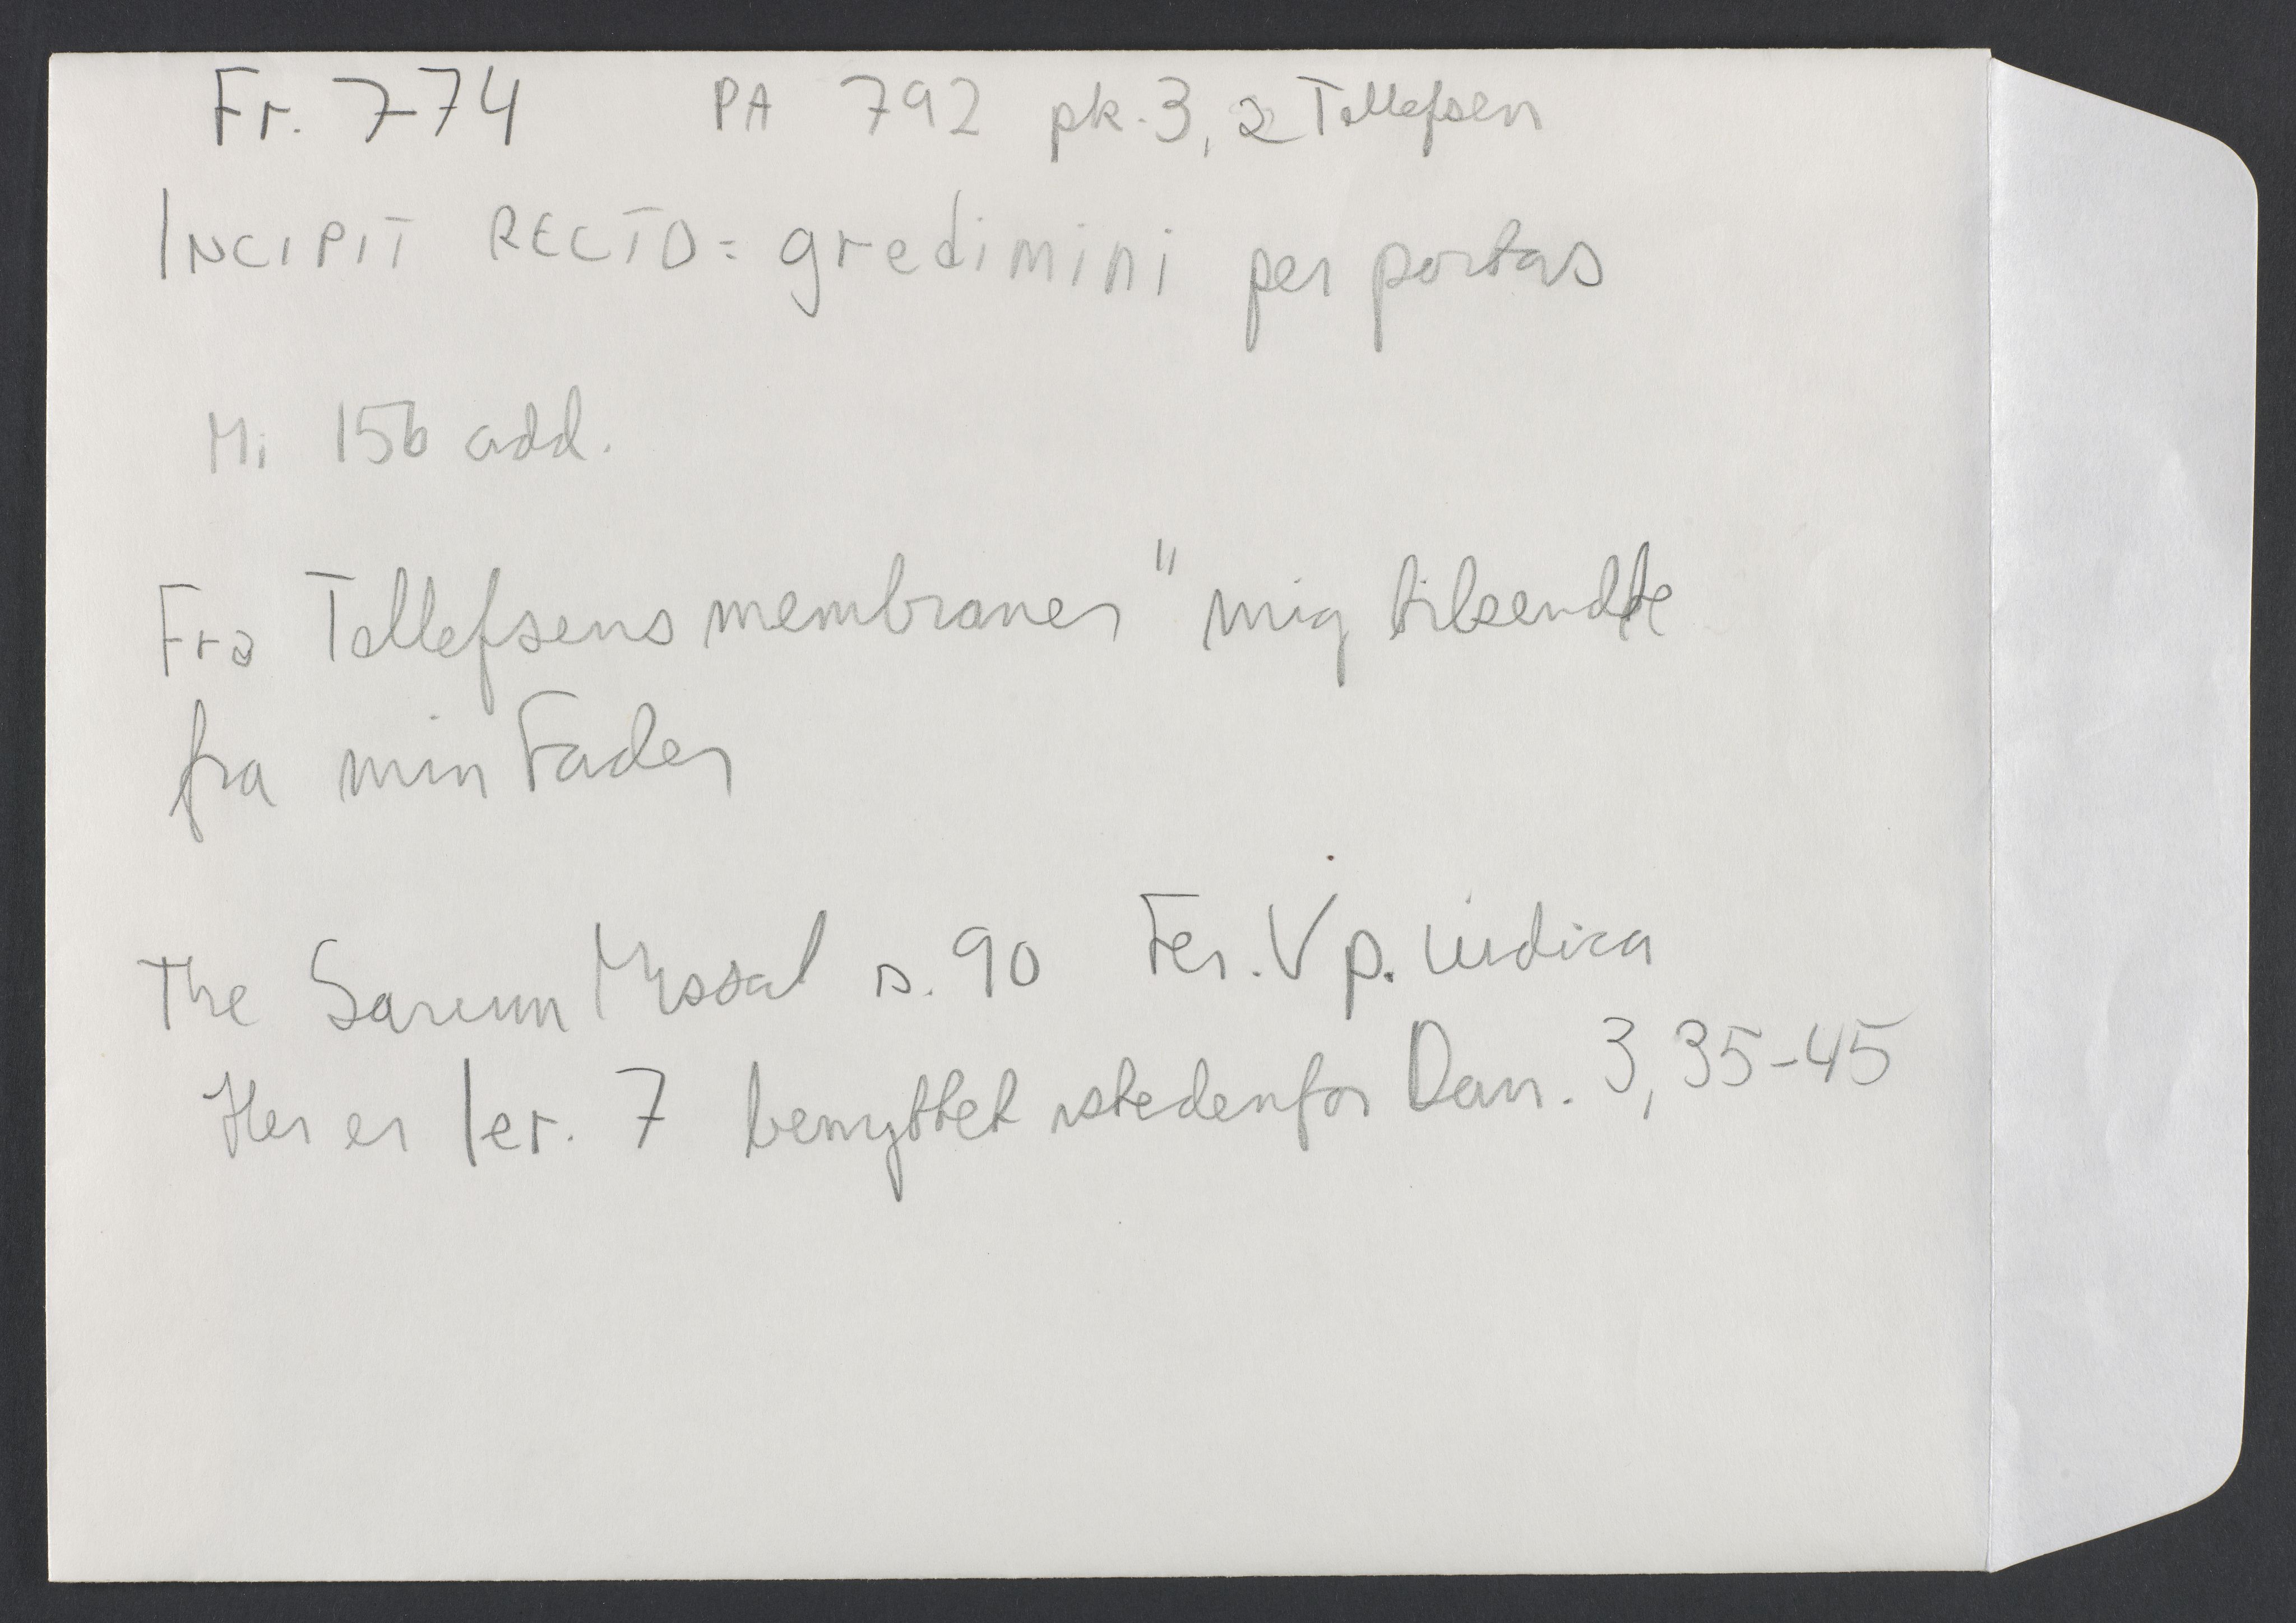 Fr. 774 PA 792 pk. 3, 2 Tollefsen
INCIPIT RECTO = gredimini per portas
Mi 156 add.
Fra Tollefsens membraner "mig tilsendte
fra min Fader
The Sarum Missal s. 90 Fer. V p. iudica
Her er Ier. 7 benyttet istedenfor Dan. 3, 35-45